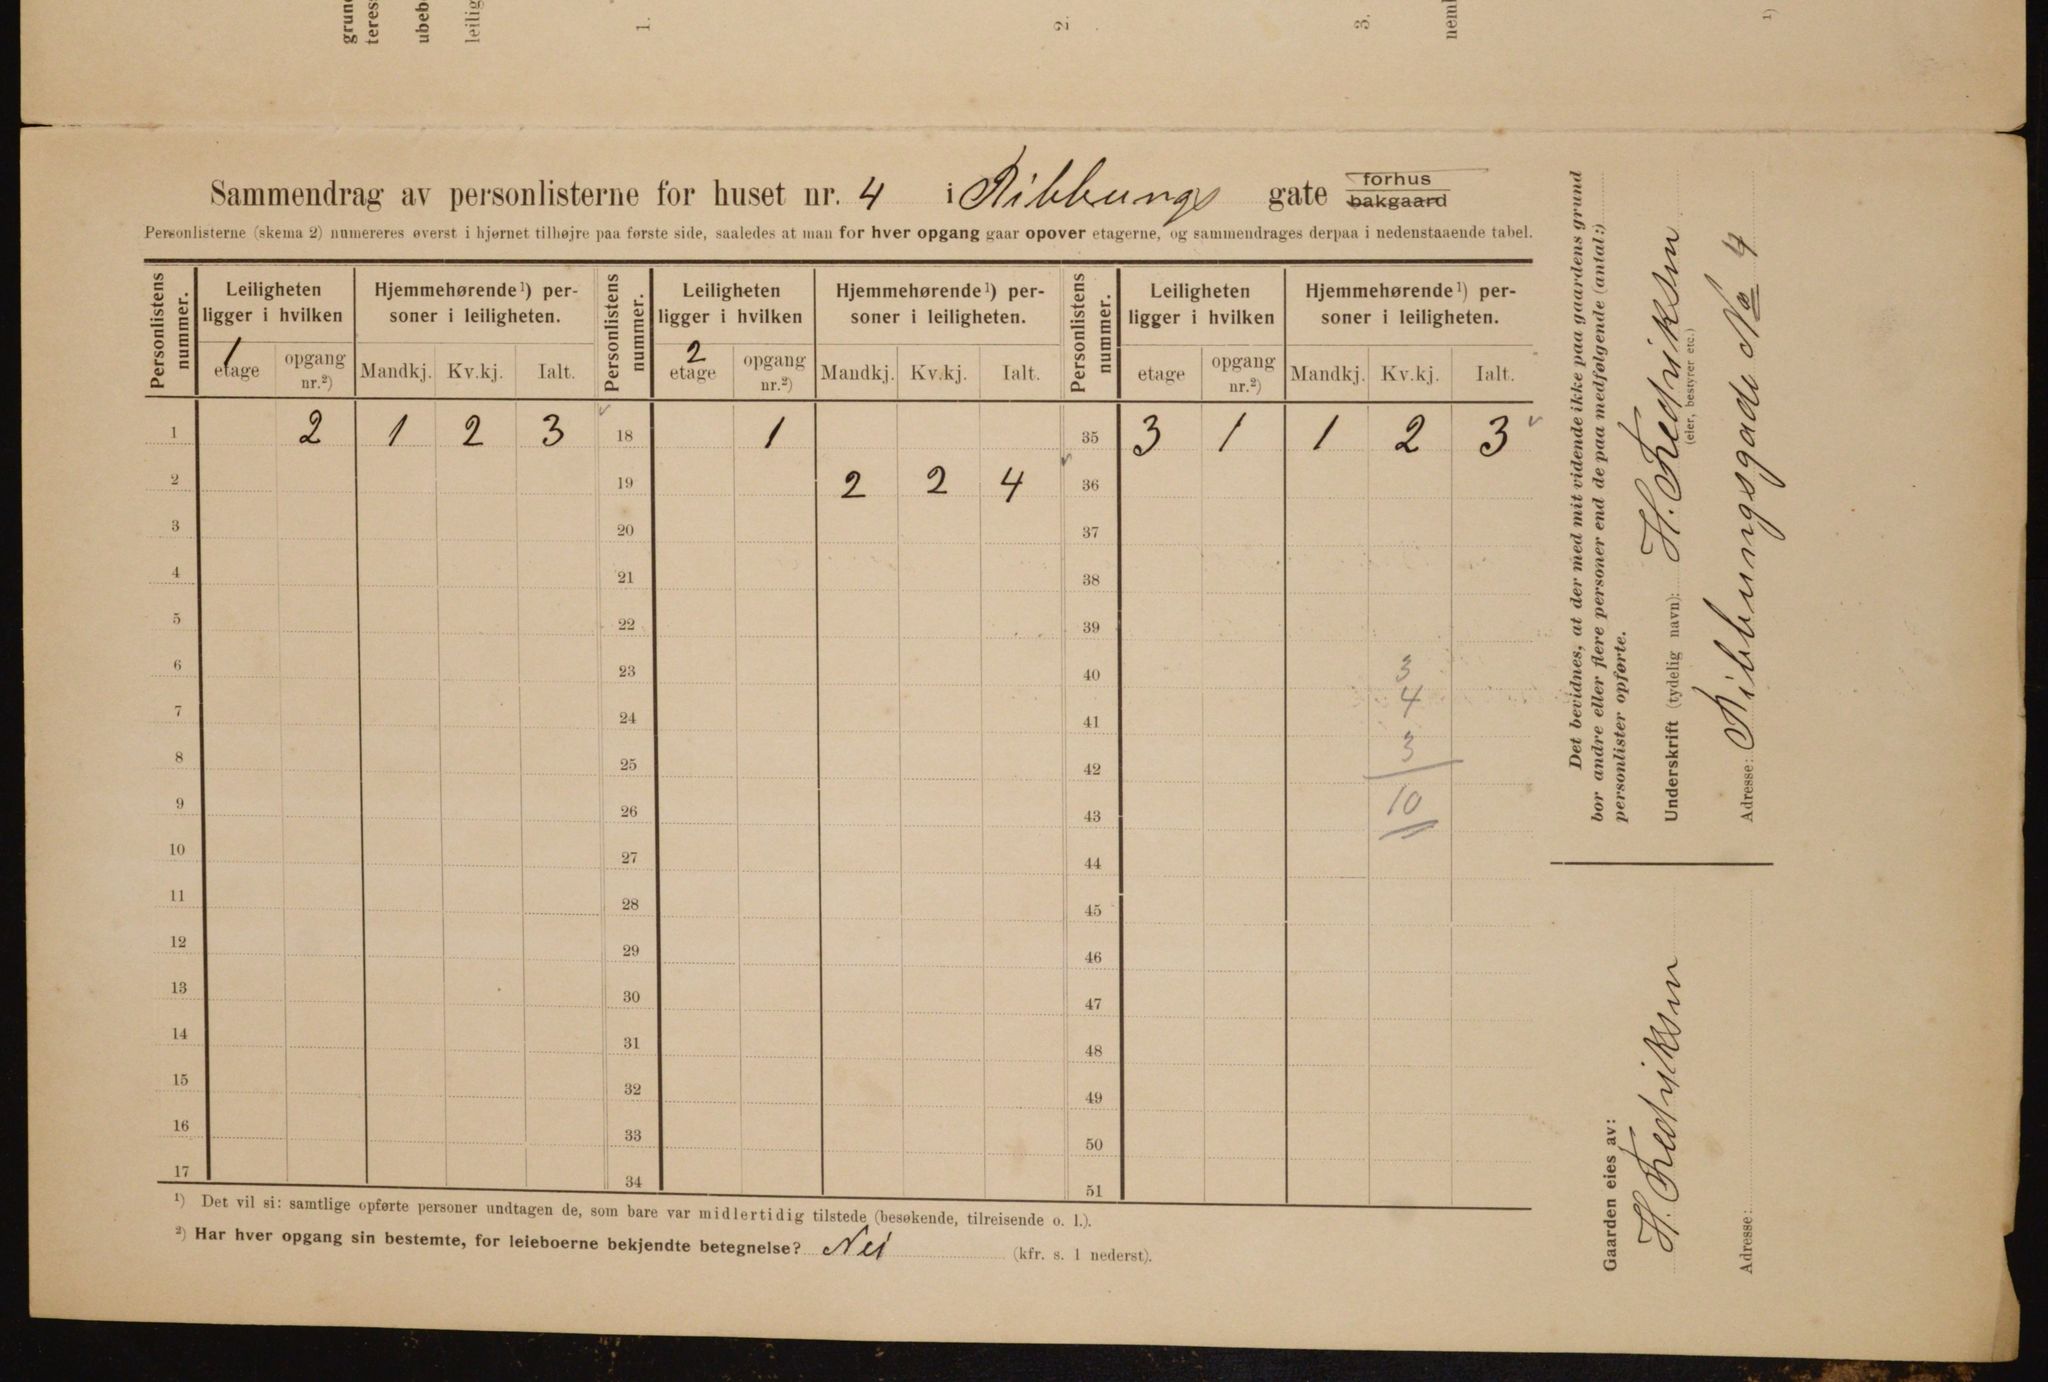 grun
teres
ubeb
leilig
1.
2.
3.
nem
1)
Sammendrag av personlisterne for huset nr. 4 i Ribbungs gate forhus bakgaard
Personlisterne (skema 2) numereres øverst i hjørnet tilhøjre paa første side, saaledes at man for hver opgang gaar opover etagerne, og sammendrages derpaa i nedenstaaende tabel.
Personlistens nummer. Leiligheten ligger i hvilken Hjemmehørende¹) personer i leiligheten. Personlistens nummer. Leiligheten ligger i hvilken Hjemmehørende¹) personer i leiligheten. Personlistens nummer. Leiligheten ligger i hvilken Hjemmehørende¹) personer i leiligheten.
1 etage opgang nr.²) Mandkj. Kv.kj. Ialt. 2 etage opgang nr.²) Mandkj. Kv.kj. Ialt. etage opgang nr.²) Mandkj. Kv.kj. Ialt.
1 2 1 2 3 18 1 35 3 1 1 2 3
2 19 2 2 4 36
3 20 37
4 21 38
5 22 39
6 23 40 3
7 24 41 4
8 25 42 3
9 26 43 10
10 27 44
11 28 45
12 29 46
13 30 47
14 31 48
15 32 49
16 33 50
17 34 51
¹) Det vil si: samtlige opførte personer undtagen de, som bare var midlertidig tilstede (besøkende, tilreisende o. l.).
²) Har hver opgang sin bestemte, for leieboerne bekjendte betegnelse? Nei (kfr. s. 1 nederst).
Det bevidnes, at der med mit vidende ikke paa gaardens grund
bor andre eller flere personer end de paa medfølgende (antal:)
personlister opførte.
Underskrift (tydelig navn): H. Fredriksen
(eier, bestyrer etc.)
Adresse: Ribbungsgade No 4
Gaarden eies av:
H. Fredriksen
Adresse: